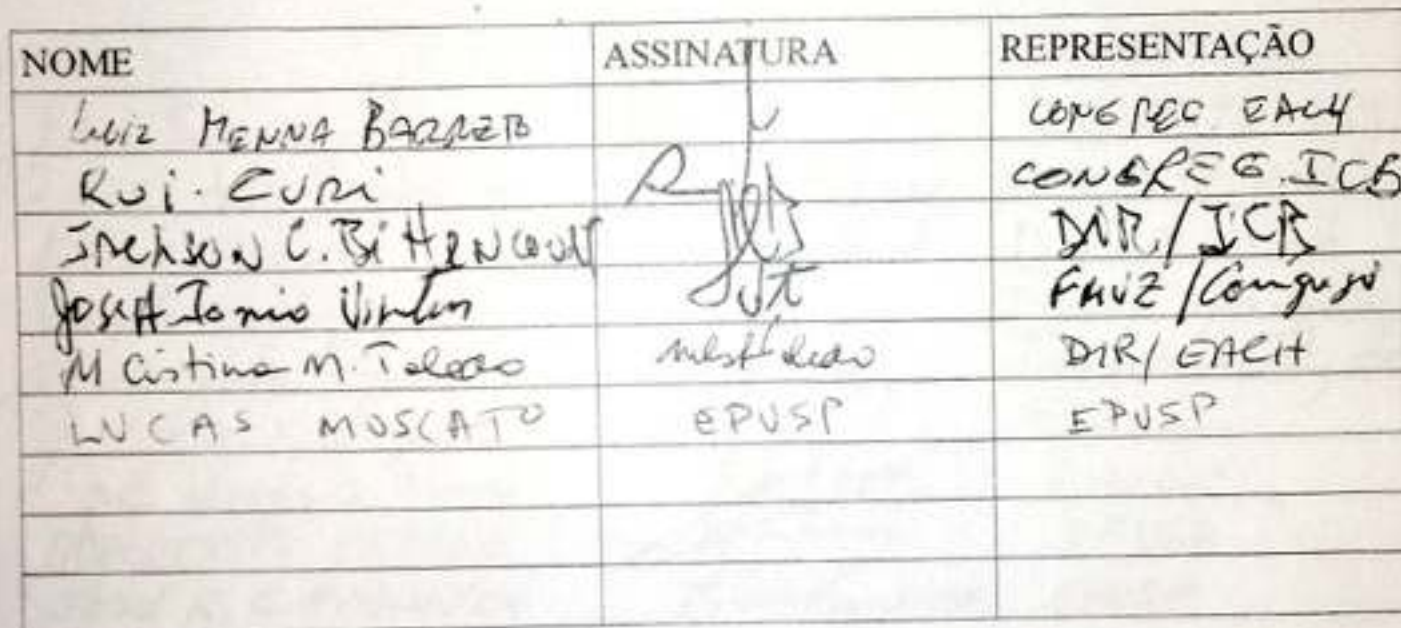 NOME ASSINATURA REPRESENTAÇÃO
Luiz MENNA BARRETO CONGREG EACH
Rui CURI CONGREG. ICB
JACKSON C. BITTENCOURT DIR/ICB
JOSÉ Antonio
M Cristina M. Toledo DIR/EACH
LUCAS MOSCATO EPUSP EPUSP